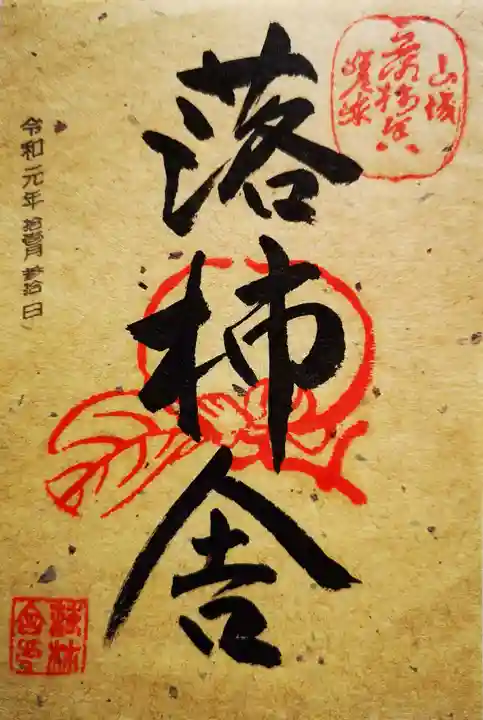 山城
落柿舎
嵯峨
落柿舎
令和元年 拾壹月 参拾日